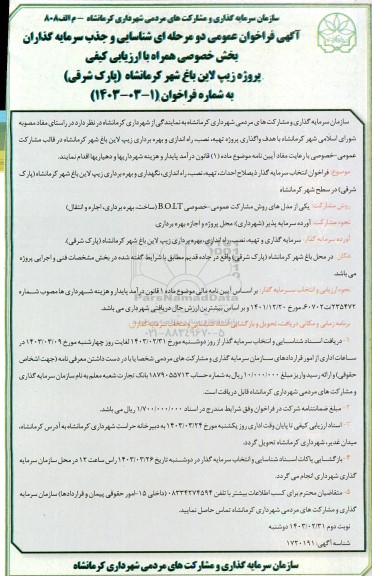 سازمان سرمایه گذاری و مشارکت های مردمی شهرداری کرمانشاه - م الف ۸۰۸
آگهی فراخوان عمومی دو مرحله ای شناسایی و جذب سرمایه گذاران
بخش خصوصی همراه با ارزیابی کیفی
پروژه زیپ لاین باغ شهر کرمانشاه (پارک شرقی)
به شماره فراخوان (۱-۰۳-۱۴۰۳)
سازمان سرمایه گذاری و مشارکت های مردمی شهرداری کرمانشاه به نمایندگی از شهرداری کرمانشاه در نظر دارد در راستای مفاد مصوبه
شورای اسلامی شهر کرمانشاه با هدف واگذاری پروژه تهیه، نصب، راه اندازی و بهره برداری زیپ لاین باغ شهر کرمانشاه در قالب مشارکت
عمومی-خصوصی با رعایت مفاد آیین نامه موضوع ماده (۱) قانون درآمد پایدار و هزینه شهرداریها و دهیاریها اقدام نمایند.
موضوع: فراخوان انتخاب سرمایه گذار ذیصلاح احداث، تهیه، نصب، راه اندازی، نگهداری و بهره برداری زیپ لاین باغ شهر کرمانشاه (پارک
شرقی) در سطح شهر کرمانشاه
روش مشارکت: یکی از مدل های روش مشارکت عمومی-خصوصی B.O.L.T (ساخت، بهره برداری، اجاره و انتقال)
نحوه مشارکت: آورده سرمایه پذیر (شهرداری): محل پروژه و اجازه بهره برداری.
آورده سرمایه گذار: سرمایه گذاری و تهیه، نصب، راه اندازی، بهره برداری زیپ لاین باغ شهر کرمانشاه (پارک شرقی).
مکان: در محل باغ شهر کرمانشاه (پارک شرقی) واقع در جاده قدیم مطابق با شرائط گفته شده در بخش مشخصات فنی و اجرایی پروژه
می باشد.
نحوه ارزیابی و انتخاب سرمایه گذار: بر اساس آیین نامه مالی موضوع ماده ۱ قانون درآمد پایدار و هزینه شهرداری ها مصوب شماره
۲۳۵۴۷۲/ت۶۰۷۰۲ مورخ ۱۴۰۱/۱۲/۲۰ و بر اساس بیشترین ارزش حال دریافتی شهرداری می باشد.
برنامه زمانی و مکانی دریافت، تحویل و بازگشایی اسناد شناسایی و انتخاب سرمایه گذاران:
۱- دریافت اسناد شناسایی و انتخاب سرمایه گذار از روز دوشنبه مورخ ۱۴۰۳/۰۲/۳۱ لغایت روز چهارشنبه مورخ ۱۴۰۳/۰۳/۰۹ در
ساعات اداری از امور قراردادهای سازمان سرمایه گذاری و مشارکت های مردمی شخصا یا با در دست داشتن معرفی نامه (جهت اشخاص
حقوقی) و ارائه رسید واریز مبلغ ۱۰/۰۰۰/۰۰۰ ریال به شماره حساب ۱۸۷۹۰۵۵۷۱۳ بانک تجارت شعبه معلم به نام سازمان سرمایه گذاری
و مشارکت های مردمی شهرداری کرمانشاه قابل دریافت است.
۲- مبلغ ضمانتنامه شرکت در فراخوان وفق شرایط مندرج در اسناد ۱/۷۰۰/۰۰۰/۰۰۰ ریال می باشد.
۳- اسناد ارزیابی کیفی تا پایان وقت اداری روز یکشنبه مورخ ۱۴۰۳/۰۳/۲۴ به دبیرخانه حراست شهرداری کرمانشاه به آدرس کرمانشاه،
میدان غدیر، شهرداری کرمانشاه تحویل گردد.
۴- بازگشایی پاکات اسناد شناسایی و انتخاب سرمایه گذار در دوشنبه تاریخ ۱۴۰۳/۰۳/۲۶ راس ساعت ۱۲ در محل سازمان سرمایه
گذاری شهرداری انجام می گردد.
۵- متقاضیان محترم برای کسب اطلاعات بیشتر با تلفن ۰۸۳۳۴۲۷۴۵۹۴ (داخلی ۱۵-امور حقوقی پیمان و قراردادها) سازمان سرمایه
گذاری و مشارکت های مردمی شهرداری کرمانشاه تماس حاصل نمایید.
نوبت دوم ۱۴۰۳/۰۲/۳۱ دوشنبه
شناسه آگهی: ۱۷۲۰۱۹۱
سازمان سرمایه گذاری و مشارکت های مردمی شهرداری کرمانشاه